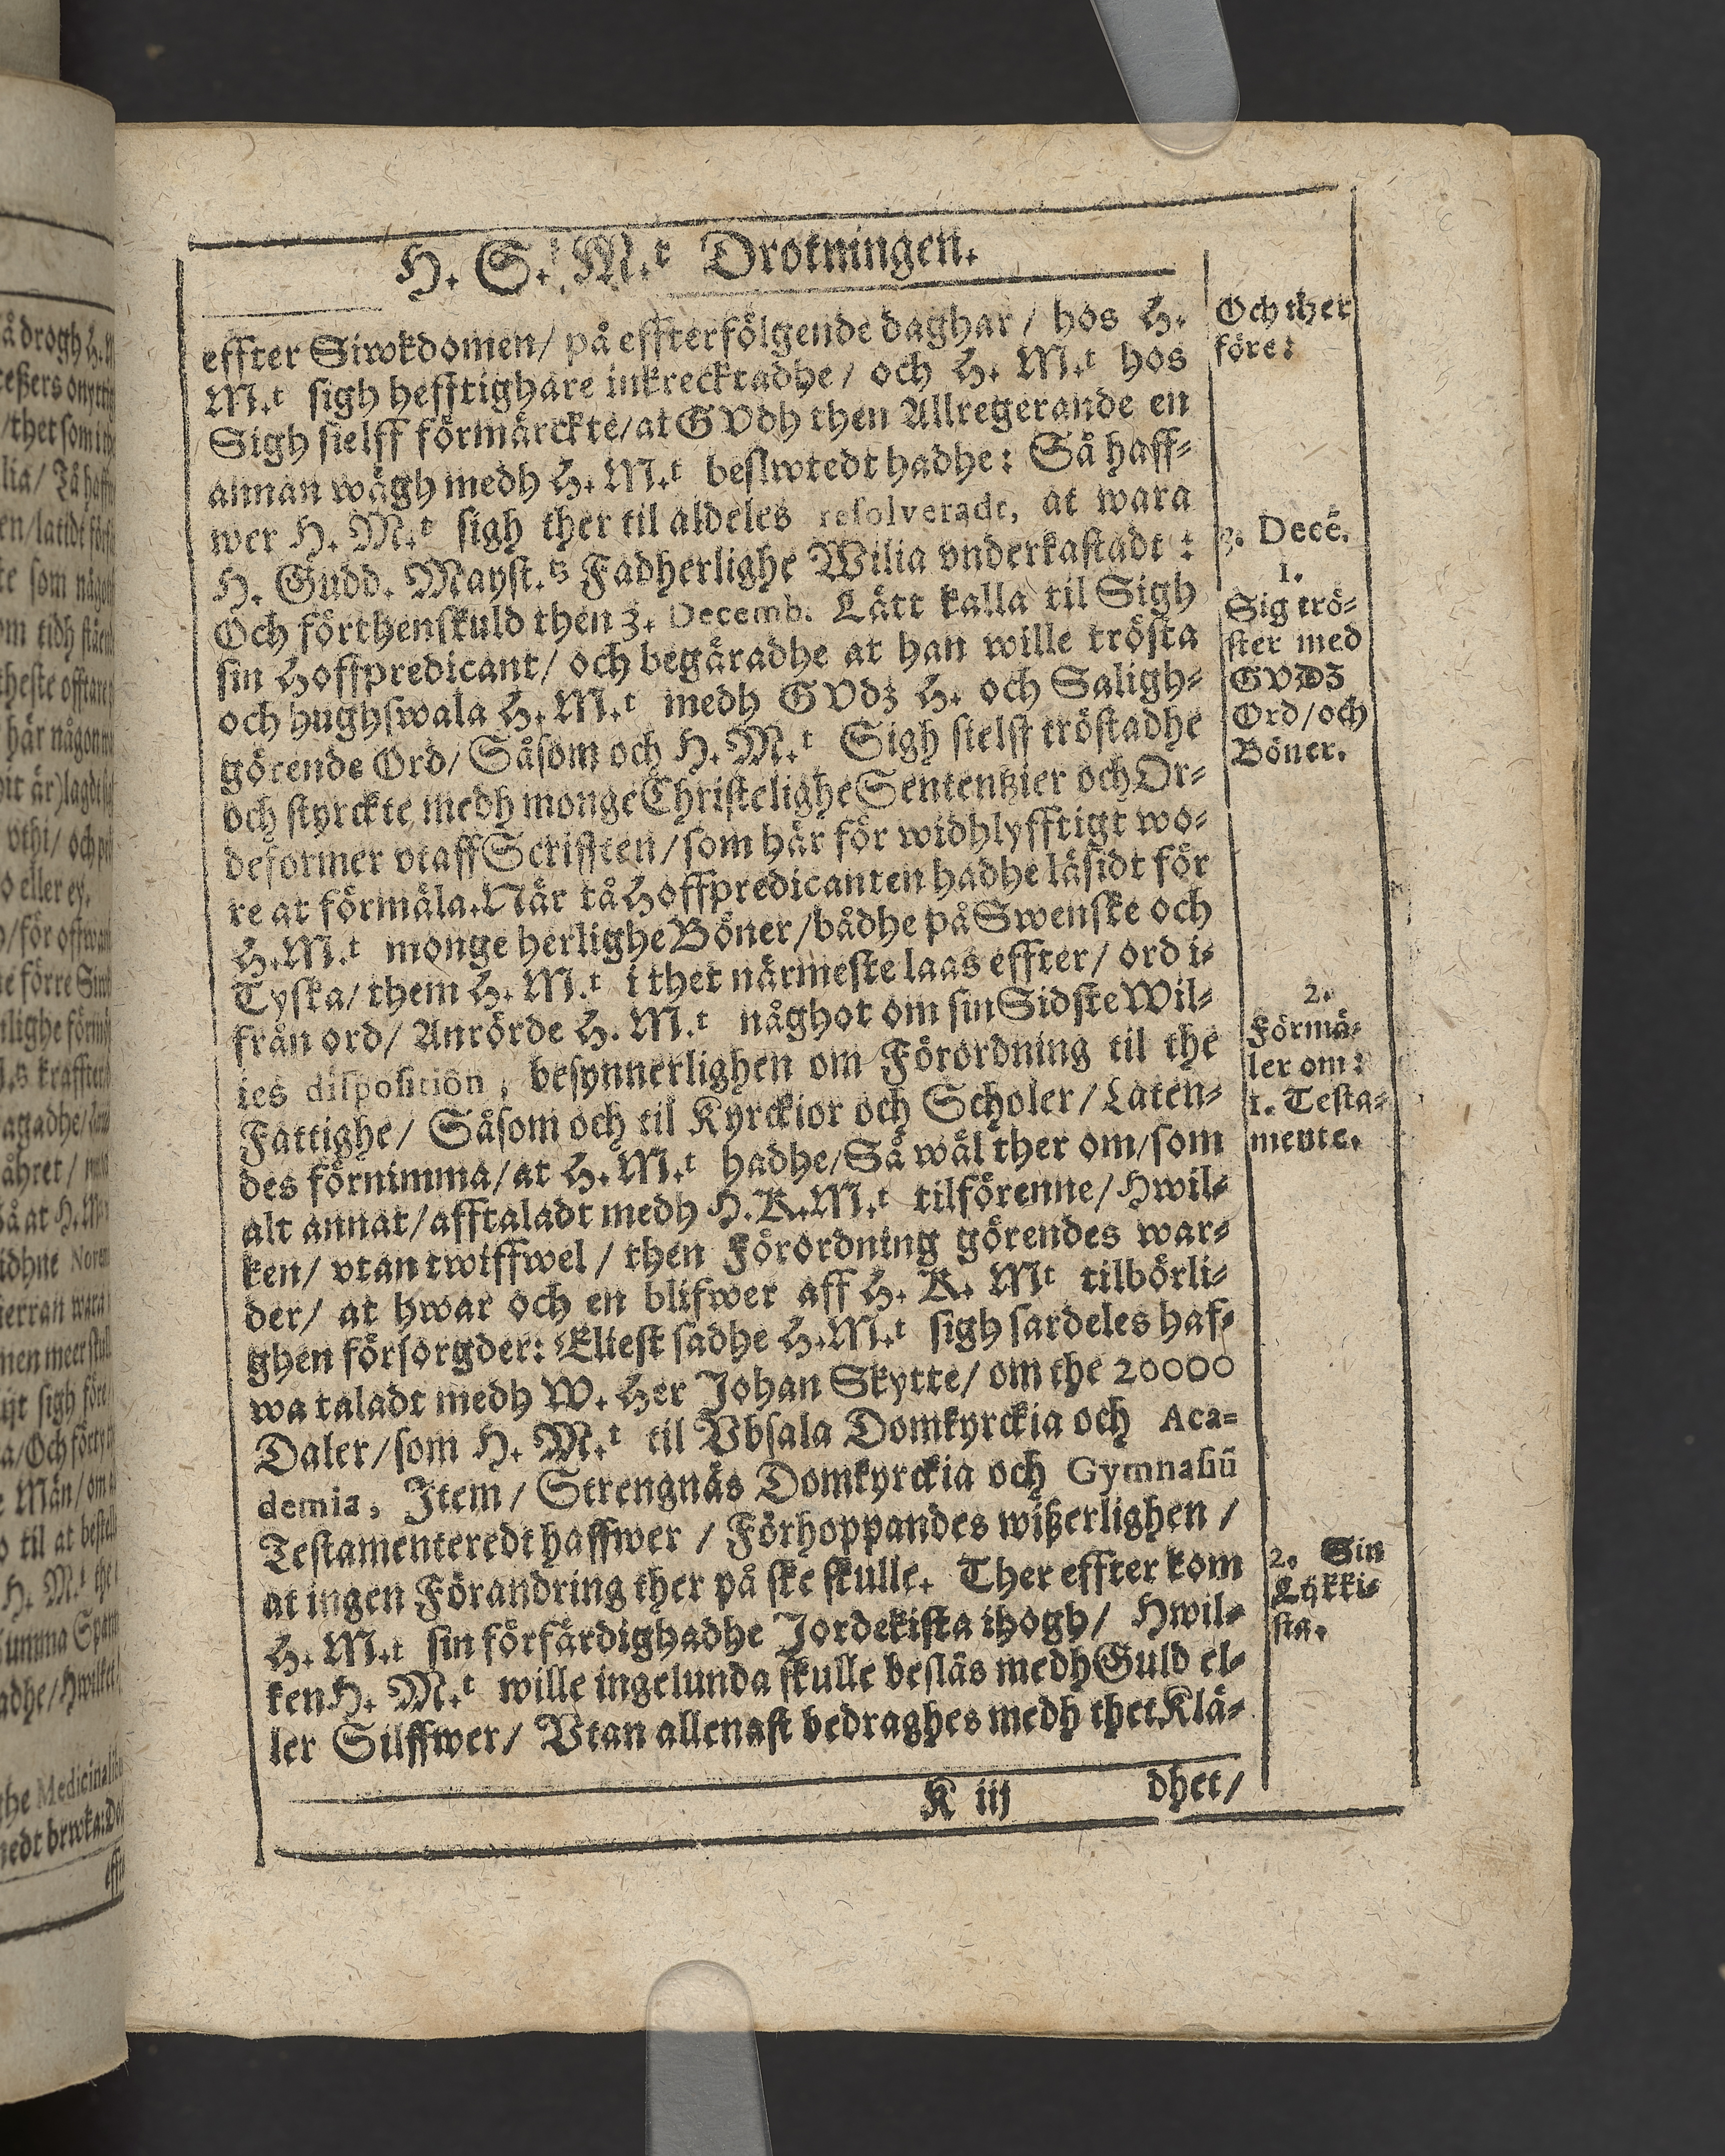 H. S. M.t Drotningen.
effter Siwkdomen/ på effterfölgende daghar / hos H.
M.t sigh hefftighare inkrecktadhe/ och H. M.t hos
Sigh sielff förmärckte/at GVdh then Allregerande en
annan wägh medh H. M.t beslwtedt hadhe: Så haff-
wer H. M.t sigh ther til aldeles resolveradt, at wara
H. Gudd. Mayst.ts Fadherlighe Wilia vnderkastadt :
Och förthenskuld then 3. Decemb. Lätt kalla til Sigh
sin Hoffpredicant/ och begäradhe at han wille trösta
och hughswala H. M.t medh GVdz H. och Saligh-
görende Ord/ Såsom och H. M.t Sigh sielff tröstadhe
och styrckte medh monge Christelighe Sententzier och Or-
deformer vtaff Scrifften/som här för widhlyfftigt wo-
re at förmäla. När tå Hoffpredicanten hadhe läsidt för
H.M.t monge herlighe Böner/bådhe på Swenske och
Tyska/ them H. M.t i thet närmeste laas effter/ ord i-
från ord/ Anrörde H. M.t någhot om sin Sidste Wil-
ies disposition, besynnerlighen om Förordning til the
Fattighe/ Såsom och til Kyrckior och Scholer/ Låten-
des förnimma/at H. M.t hadhe/Så wäl ther om/som
alt annat/afftaladt medh H.K.M.t tilförenne/Hwil-
ken/ vtan twiffwel / then Förordning görendes war-
der/ at hwar och en blifwer aff H. K. Mt tilbörli-
ghen försorgder: Eliest sadhe H.M.t sigh särdeles haf-
wa taladt medh W. Her Johan Skytte/ om the 20000
Daler/som H. M.t til Vbsala Domkyrckia och Aca-
demia, Item/ Strengnäs Domkyrckia och Gymnasiū
Testamenteredt haffwer / Förhoppandes wißerlighen /
at ingen Förandring ther på ske skulle. Ther effter kom
H. M.t sin förfärdighadhe Jordekista ihogh/ Hwil-
ken H. M.t wille ingelunda skulle beslås medh Guld el-
ler Silffwer/ Vtan allenast bedraghes medh thet Klä-
K iij dhet/
Och ther
före:
3. Decē.
1.
Sig trö-
ster med
GVDZ
Ord/och
Böner.
2.
Förmä-
ler om:
1. Testa-
mente.
2. Sin
Lijkki-
sta.